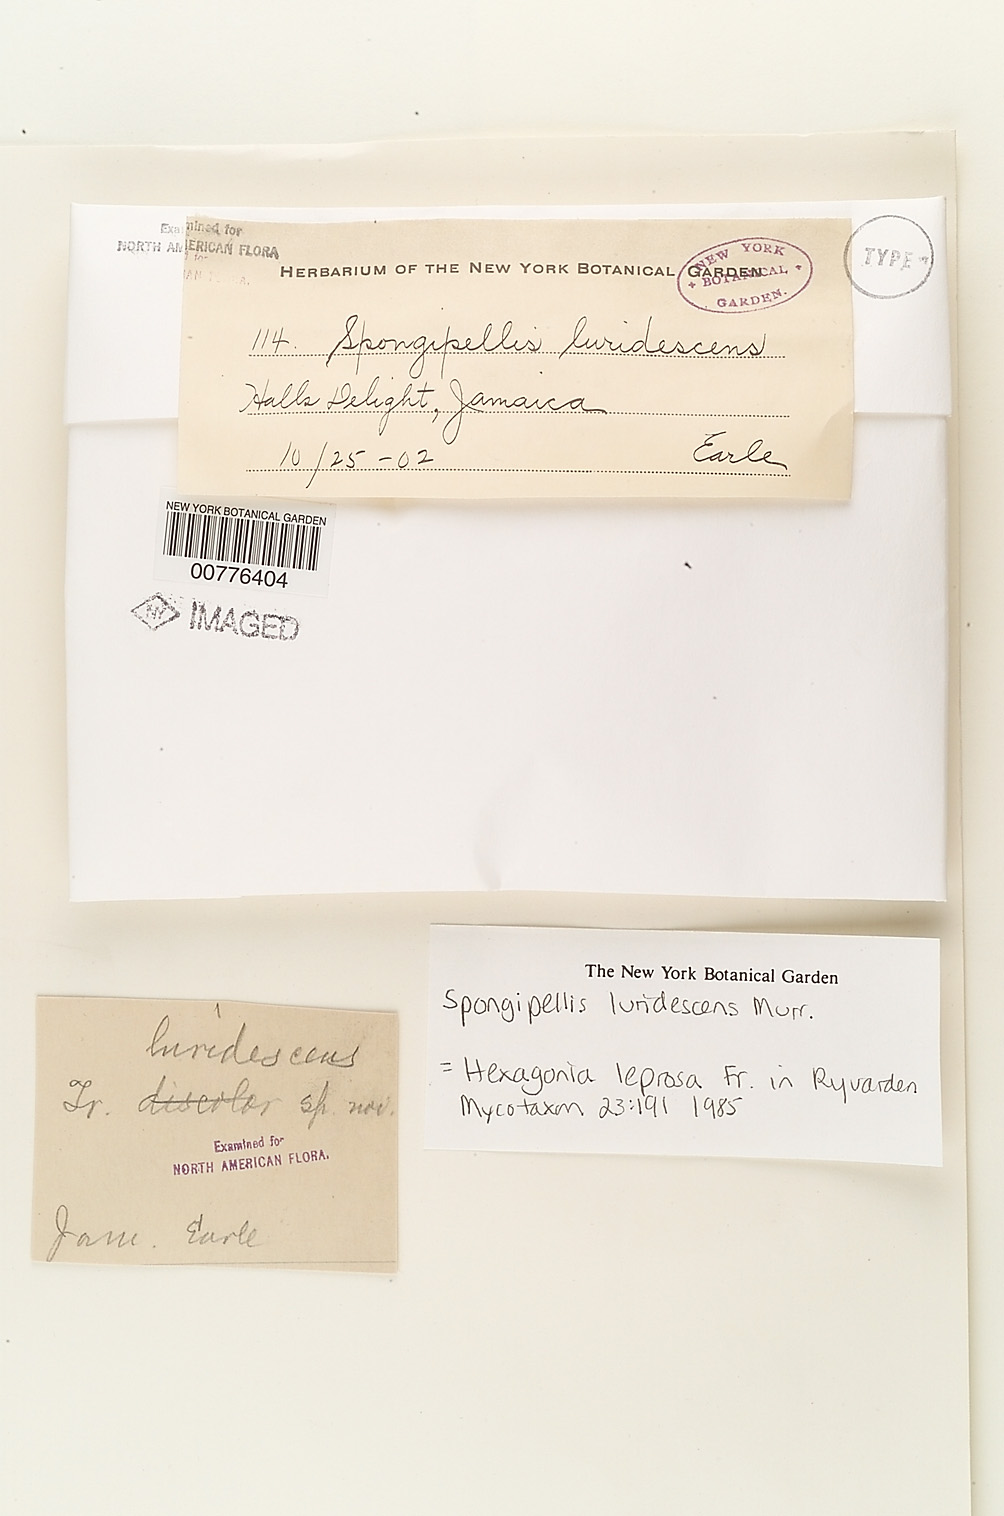 Examined for
NORTH AMERICAN FLORA
HERBARIUM OF THE NEW YORK BOTANICAL GARDEN
NEW YORK
BOTANICAL
GARDEN.
TYPE
114. Spongipellis luridescens
Halls Delight, Jamaica
10/25-02 Earle
NEW YORK BOTANICAL GARDEN
00776404
NY IMAGED
The New York Botanical Garden
Spongipellis luridescens Murr.
= Hexagonia leprosa Fr. in Ryvarden
Mycotaxon 23:191 1985
luridescens
Tr. discolor sp. nov.
Examined for
NORTH AMERICAN FLORA.
Jam. Earle